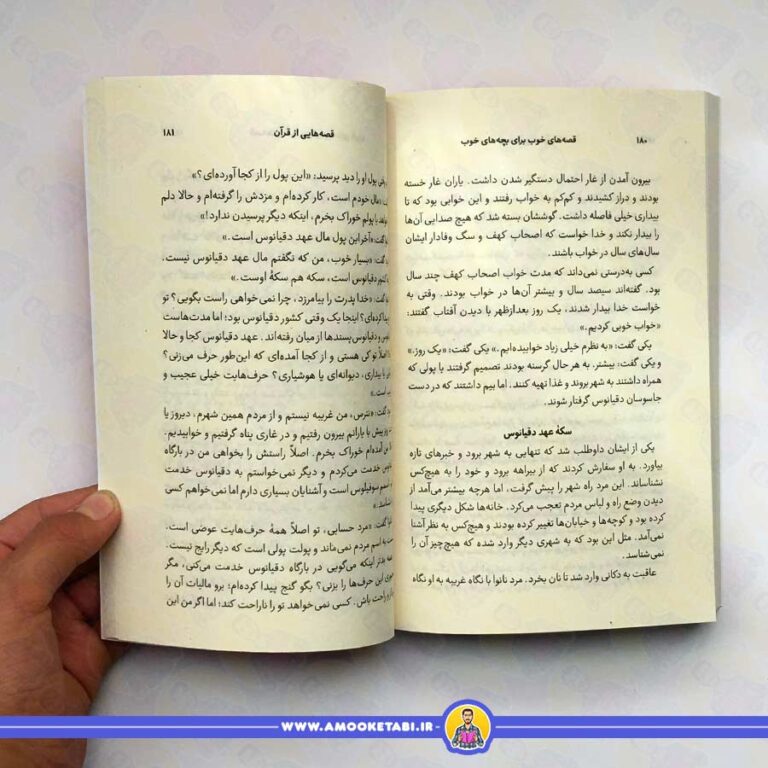 ۱۸۰
قصه‌های خوب برای بچه‌های خوب
بیرون آمدن از غار احتمال دستگیر شدن داشت. یاران غار خسته
بودند و دراز کشیدند و کم‌کم به خواب رفتند و این خوابی بود که تا
بیداری خیلی فاصله داشت. گوششان بسته شد که هیچ صدایی آن‌ها
را بیدار نکند و خدا خواست که اصحاب کهف و سگ وفادار ایشان
سال‌های سال در خواب باشند.
کسی به‌درستی نمی‌داند که مدت خواب اصحاب کهف چند سال
بود. گفته‌اند سیصد سال و بیشتر آن‌ها در خواب بودند. وقتی به
خواست خدا بیدار شدند، یک روز بعدازظهر با دیدن آفتاب گفتند:
«خواب خوبی کردیم.»
یکی گفت: «به نظرم خیلی زیاد خوابیده‌ایم.» یکی گفت: «یک روز.»
و یکی گفت: بیشتر. به هر حال گرسنه بودند تصمیم گرفتند با پولی که
همراه داشتند به شهر بروند و غذا تهیه کنند. اما بیم داشتند که در دست
جاسوسان دقیانوس گرفتار شوند.
سکهٔ عهد دقیانوس
یکی از ایشان داوطلب شد که تنهایی به شهر برود و خبرهای تازه
بیاورد. به او سفارش کردند که از بیراهه برود و خود را به هیچ‌کس
نشناساند. این مرد راه شهر را پیش گرفت، اما هرچه بیشتر می‌آمد از
دیدن وضع راه و لباس مردم تعجب می‌کرد. خانه‌ها شکل دیگری پیدا
کرده بود و کوچه‌ها و خیابان‌ها تغییر کرده بودند و هیچ‌کس به نظر آشنا
نمی‌آمد. مثل این بود که به شهری دیگر وارد شده که هیچ‌چیز آن را
نمی‌شناسد.
عاقبت به دکانی وارد شد تا نان بخرد. مرد نانوا با نگاه غریبه به او نگاه
قصه‌هایی از قرآن
۱۸۱
پول او را دید پرسید: «این پول را از کجا آورده‌ای؟»
مال خودم است، کار کرده‌ام و مزدش را گرفته‌ام و حالا دلم
با پولم خوراک بخرم، اینکه دیگر پرسیدن ندارد!»
گفت: «آخر این پول مال عهد دقیانوس است.»
گفت: «بسیار خوب، من که نگفتم مال عهد دقیانوس نیست.
کشور دقیانوس است، سکه هم سکهٔ اوست.»
گفت: «خدا پدرت را بیامرزد، چرا نمی‌خواهی راست بگویی؟ تو
کرده‌ای؟ اینجا یک وقتی کشور دقیانوس بود؛ اما مدت‌هاست
دقیانوس‌پسندها از میان رفته‌اند. عهد دقیانوس کجا و حالا
اصلاً تو کی هستی و از کجا آمده‌ای که این‌طور حرف می‌زنی؟
بیداری، دیوانه‌ای یا هوشیاری؟ حرف‌هایت خیلی عجیب و
است.»
گفت: «نترس، من غریبه نیستم و از مردم همین شهرم، دیروز یا
پیش با یارانم بیرون رفتیم و در غاری پناه گرفتیم و خوابیدیم.
من آمده‌ام خوراک بخرم. اصلاً راستش را بخواهی من در بارگاه
خدمت می‌کردم و دیگر نمی‌خواستم به دقیانوس خدمت
سوفیلوس است و آشنایان بسیاری دارم اما نمی‌خواهم کسی
گفت: «مرد حسابی، تو اصلاً همهٔ حرف‌هایت عوضی است.
به اسم مردم نمی‌ماند و پولت پولی است که دیگر رایج نیست.
بدتر اینکه می‌گویی در بارگاه دقیانوس خدمت می‌کنی، مگر
این حرف‌ها را بزنی؟ بگو گنج پیدا کرده‌ام؛ برو مالیات آن را
راحت باش. کسی نمی‌خواهد تو را ناراحت کند؛ اما اگر من این
WWW.AMOOKETABI.IR